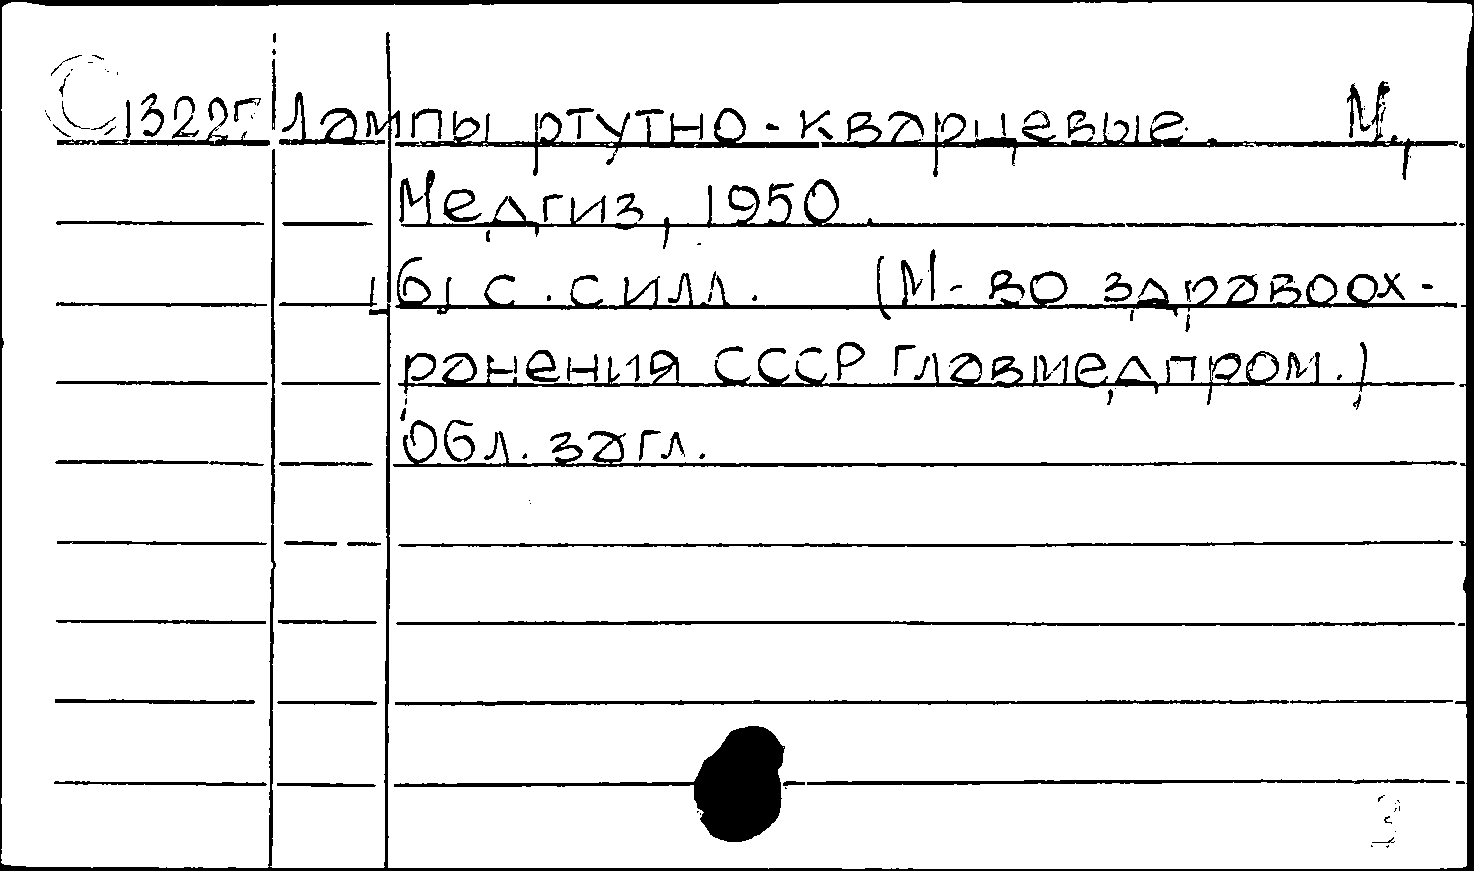 С13227 Лампы ртутно-кварцевые. М.,
Медгиз, 1950.
[6] с. с илл. (М-во здравоох-
ранения СССР Главмедпром.)
Обл. загл.
3